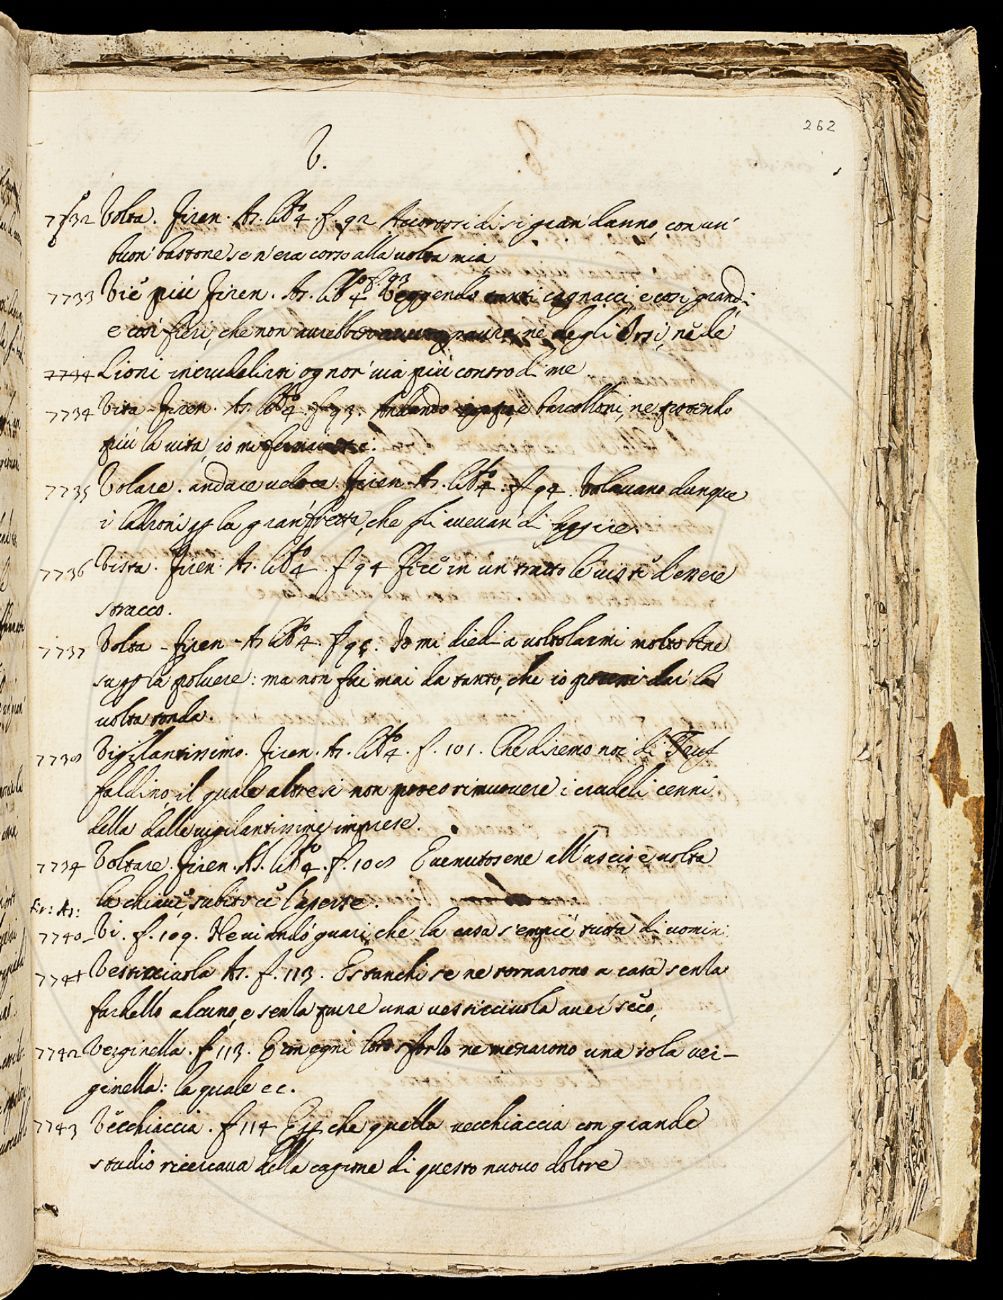 262
V.
7732 Volta. Firen. As. lib.º 4. f. 92 Accortosi di sì gran danno, con un
buon bastone se n'era corso alla volta mia
7733 Vie più Firen. As. lib.º 4 f. 93 Veggendo tanti cagnacci, e così grandi
e così fieri, che non avrebbero avuto paura, nè degli Orsi, nè de
7734 Lioni incrudelirsi ognor via più contro di me
7734 Vita. Firen. As. lib.º 4. f. 93. Andando barcolloni, ne potendo
più la vita io mi
7735 Volare. andare veloce. Firen. As. lib.º 4. f. 94. Volavano dunque
i ladroni p la gran fretta, che si avevan di fuggire.
7736 Vista. Firen. As. lib.º 4. f. 94 Fece in un tratto le viste d'essere
stracco.
7737 Volta - Firen - As. lib.º 4. f. 95. Io mi diedi a voltolarmi molto bene
su p la polvere: ma non fui mai da tanto, che io potessi dar la
volta tonda.
7738 Vigilantissimo. Firen. As. lib.º 4. f. 101. Che diremo noi di
il quale altresì non poteo rimuovere i crudeli cenni
della dalle vigilantissime imprese.
7739 Voltare. Firen. As. lib.º 4. f. 108 E venutosene all'uscio e volta
la chiave, subito ce l'aperse.
Fir: As:
7740 Vi. f. 109. Ne vi andò guari, che la casa s'empiè tutta di uomini
7741 Vesticciuola As. f. 113. E stanchi se ne tornarono a casa senza
fardello alcuno, e senza pure una vesticciuola aver seco,
7742 Verginella. f. 113. E con ogni loro sforzo ne menarono una sola ver-
ginella: la quale ec.
7743 Vecchiaccia. f. 114 che quella vecchiaccia con grande
studio ricercava della cagione di questo nuovo dolore